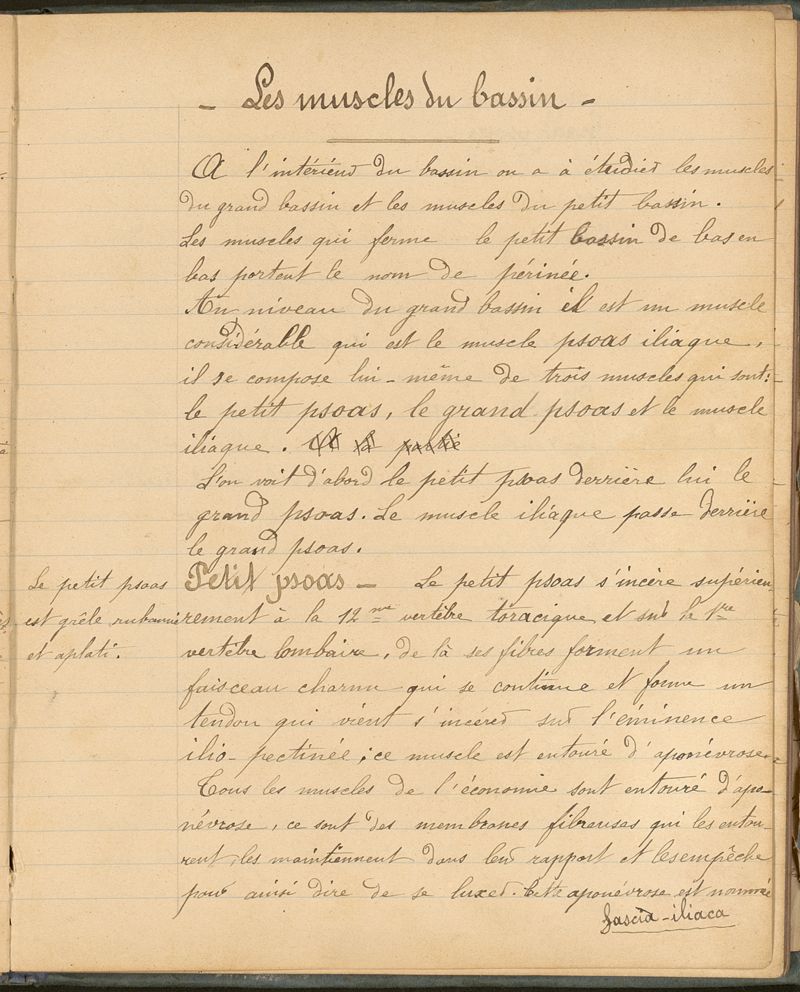 - Les muscles du bassin -
A l'intérieur du bassin on a à étudier les muscles
du grand bassin et les muscles du petit bassin.
Les muscles qui forme le petit bassin de bas en
bas portent le nom de périnée.
Au niveau du grand bassin il est un muscle
considérable qui est le muscle psoas iliaque,
il se compose lui-même de trois muscles qui sont:
le petit psoas, le grand psoas et le muscle
iliaque.
L'on voit d'abord le petit psoas derrière lui le
grand psoas. Le muscle iliaque passe derrière
le grand psoas.
Le petit psoas
est grêle rubanné
et aplati.
Petit psoas - Le petit psoas s'incère supérieu-
rement à la 12me vertèbre toracique et sur la 1re
vertèbre lombaire, de là ses fibres forment un
faisceau charnu qui se continue et forme un
tendon qui vient s'incérer sur l'éminence
ilio-pectinée; ce muscle est entouré d'aponévrose.
Tous les muscles de l'économie sont entouré d'apo-
névrose, ce sont des membranes fibreuses qui les entou-
rent, les maintiennent dans leur rapport et les empêche
pour ainsi dire de se luxer. Cette aponévrose est nommée
fascia-iliaca